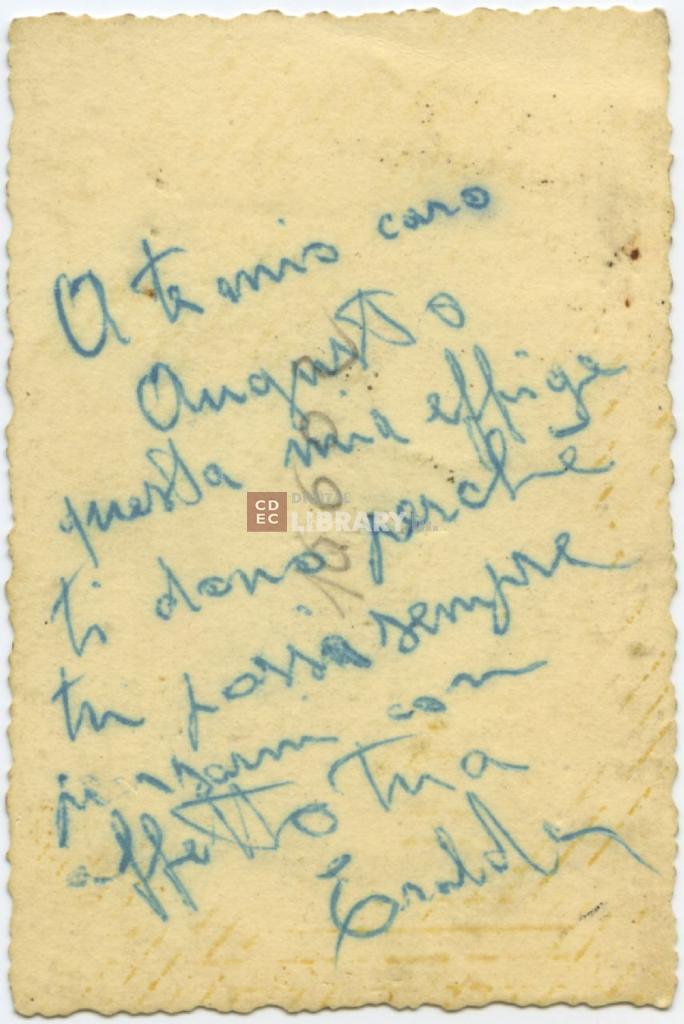 A te mio caro
Augusto
questa mia effige
ti dono perché
tu possa sempre
pensarmi con
affetto tua
CDEC
DIGITAL
LIBRARY